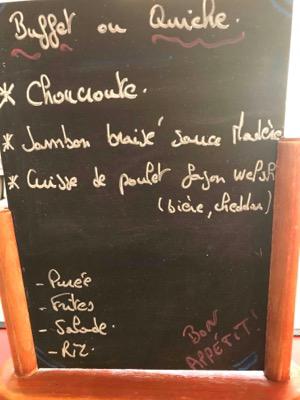 Buffet ou Quiche.
* Choucroute.
* Jambon braisé sauce Madère
* Cuisse de poulet façon Welsh
(bière, cheddar)
- Purée
- Frites
- Salade.
- Riz
BON
APPÉTIT!